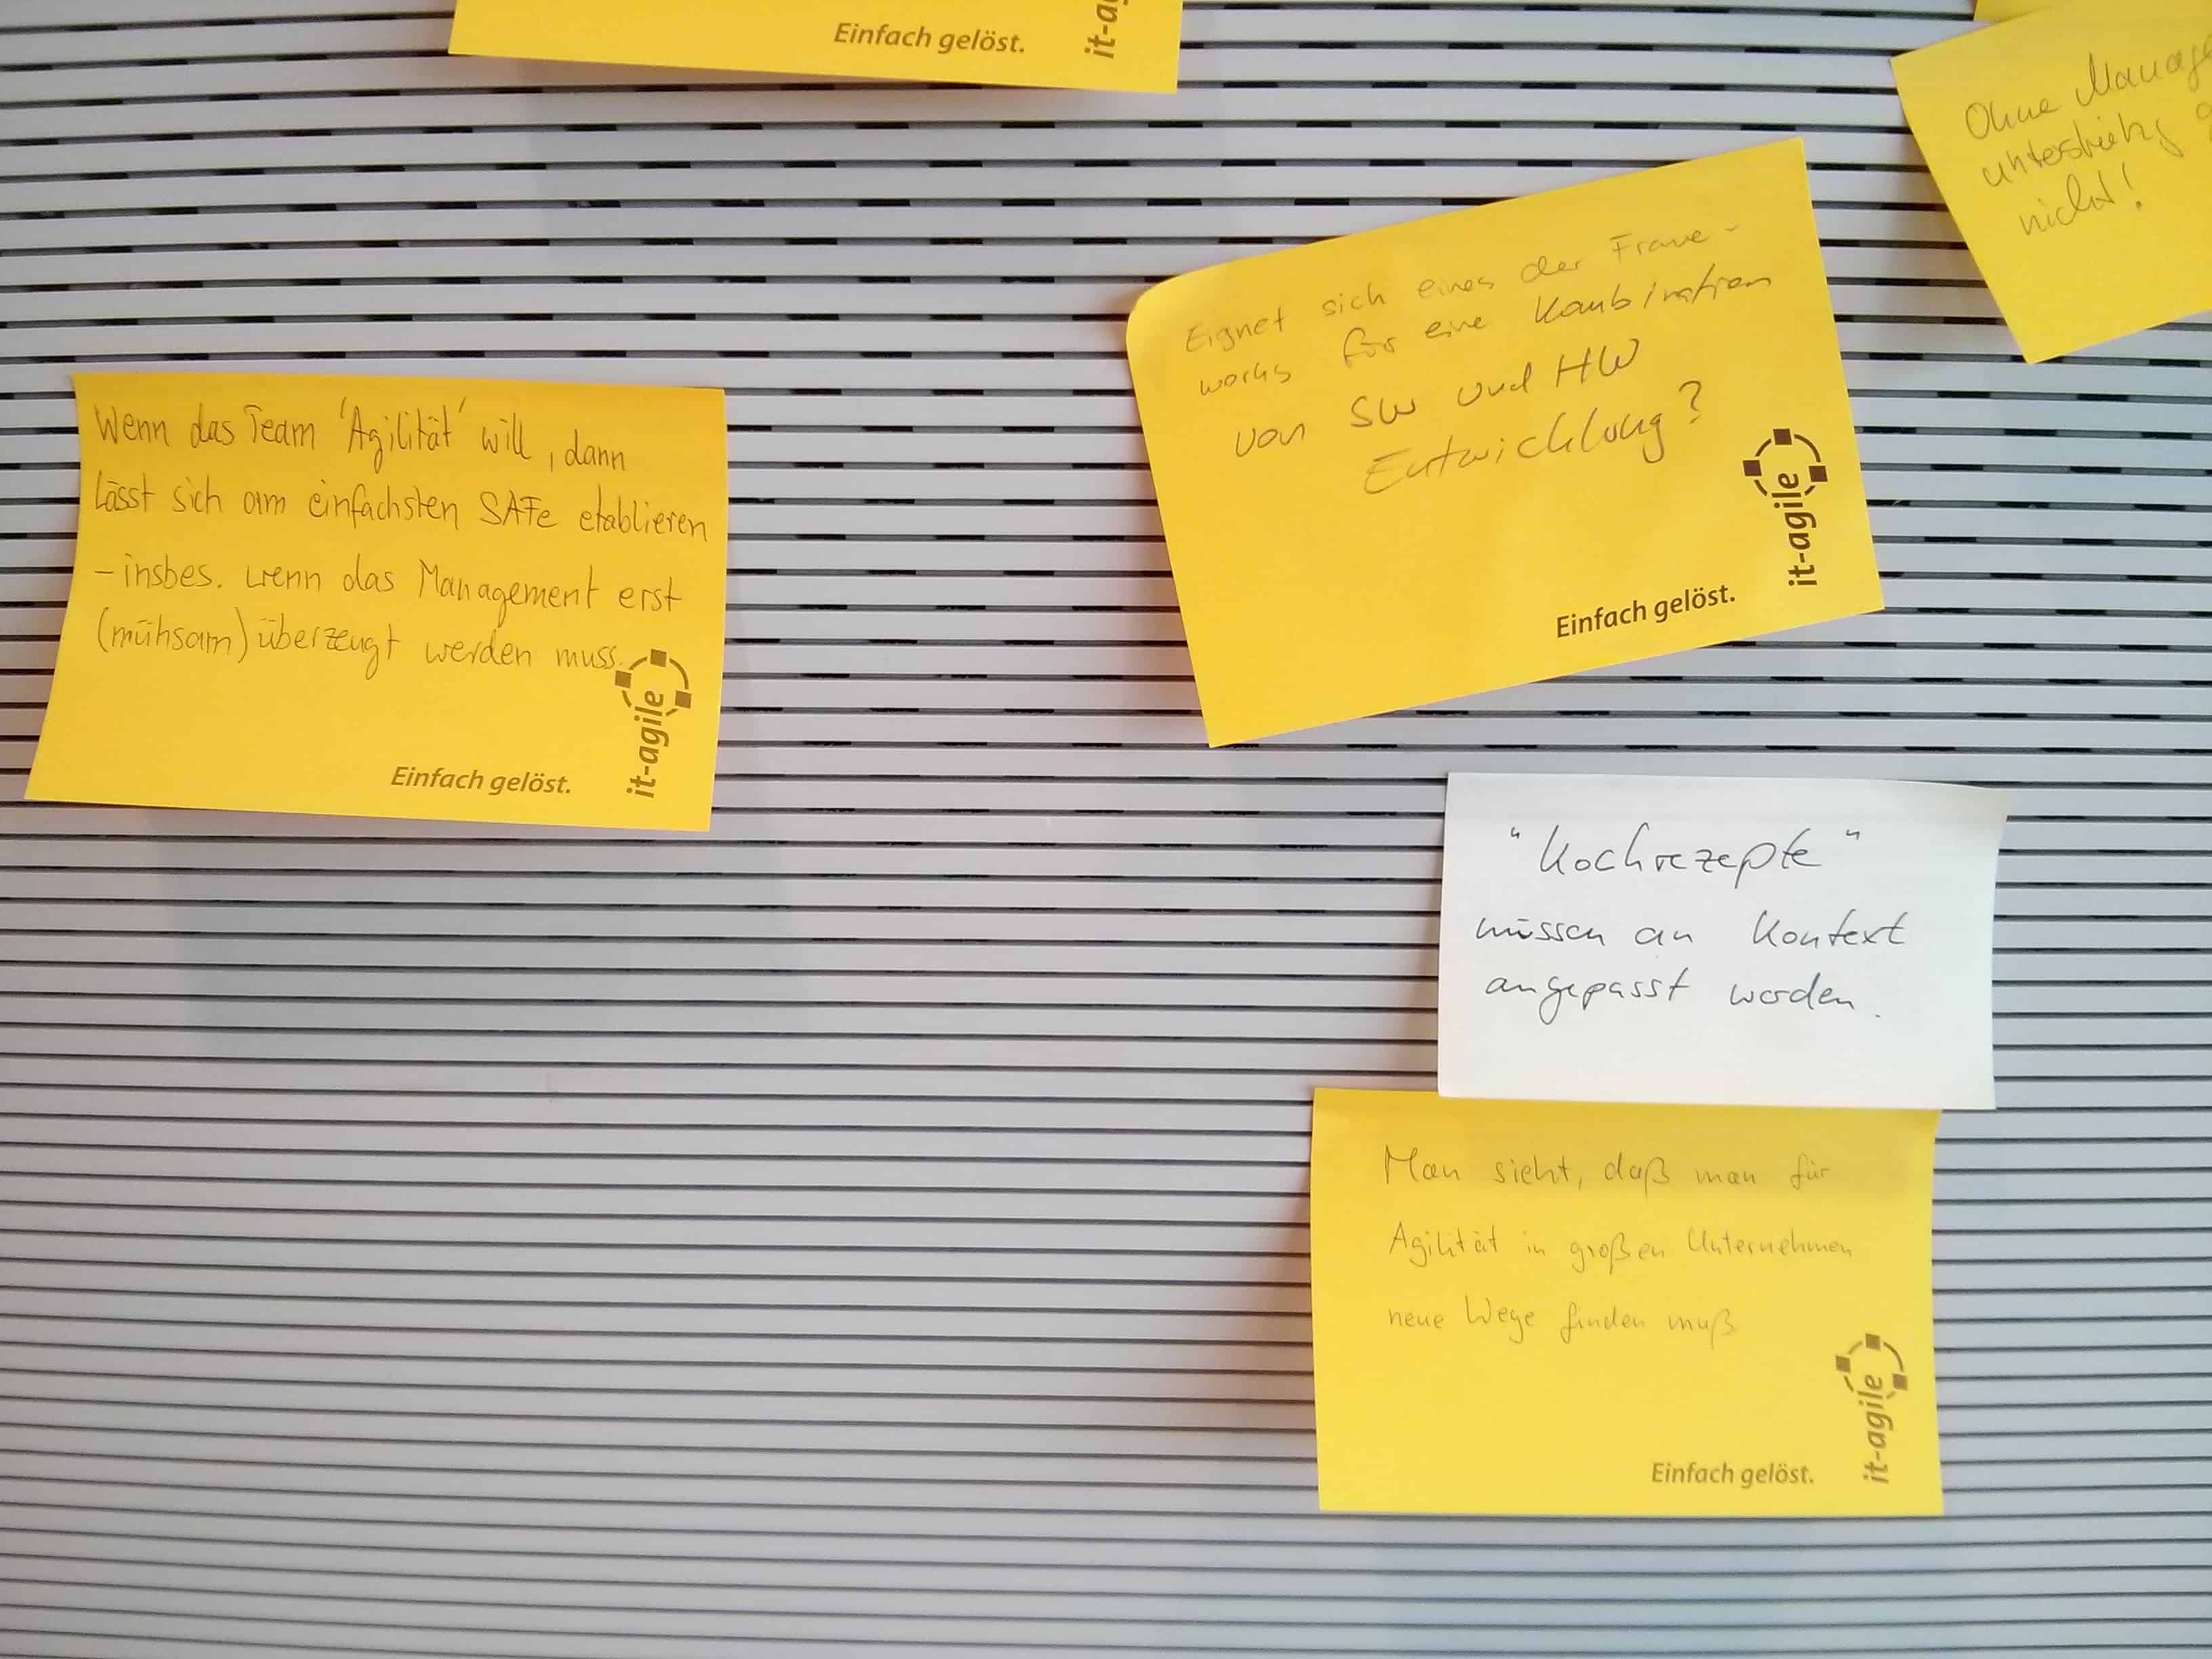 Einfach gelöst.
Ohne
nicht!
Eignet sich eines der Frame-
works für eine Kombination
von SW und HW
Entwicklung?
it-agile
Einfach gelöst.
Wenn das Team 'Agilität' will, dann
lässt sich am einfachsten SAFe etablieren
- insbes. wenn das Management erst
(mühsam) überzeugt werden muss.
it-agile
Einfach gelöst.
"Kochrezepte"
müssen an Kontext
angepasst werden.
Man sieht, daß man für
Agilität in großen Unternehmen
neue Wege finden muß
it-agile
Einfach gelöst.